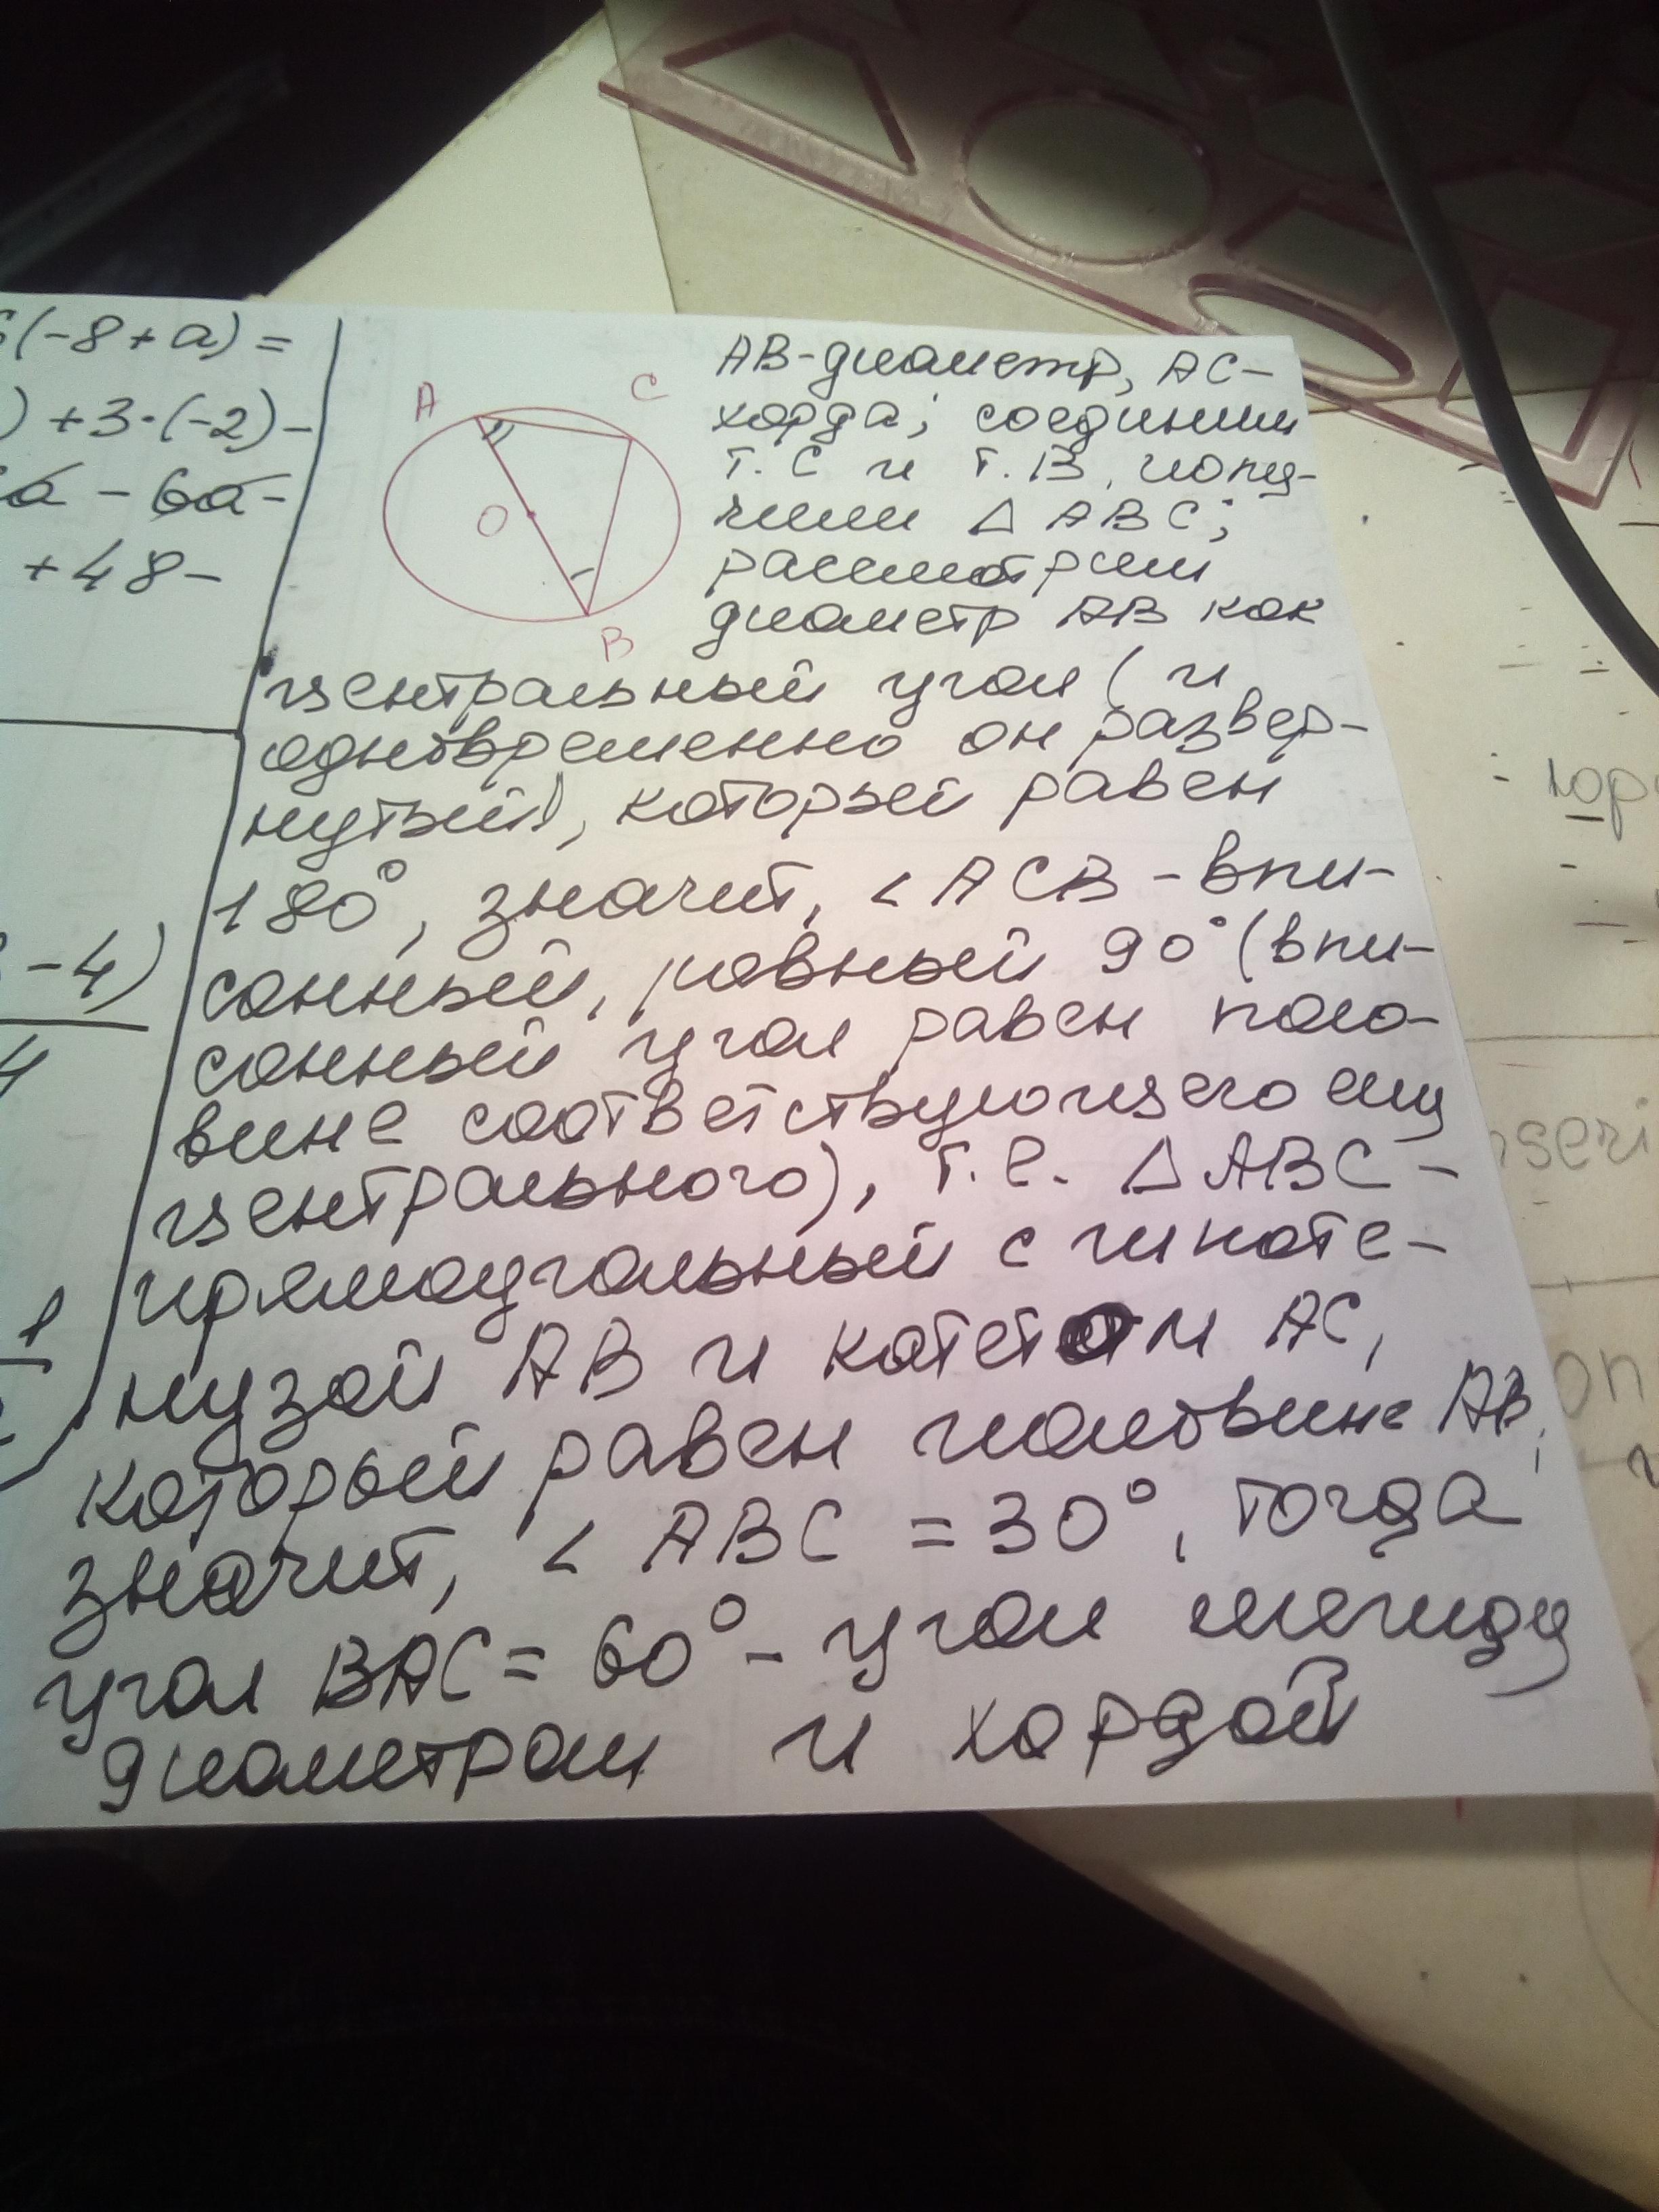 (-8+a)=
)+3·(-2)-
a-6a-
+48-
-4)
4
1
A
C
O
B
AB-диаметр, AC-
хорда; соединим
т. C и т. B, полу-
чим △ ABC;
рассмотрим
диаметр AB как
центральный угол (и
одновременно он развер-
нутый), который равен
180°, значит, < ACB - впи-
санный, равный 90° (впи-
санный угол равен поло-
вине соответствующего ему
центрального), т.е. △ ABC -
прямоугольный с гипоте-
нузой AB и катетом AC,
который равен половине AB,
значит, < ABC = 30°, тогда
угол BAC = 60° - угол между
диаметром и хордой
- юр
nseri
on